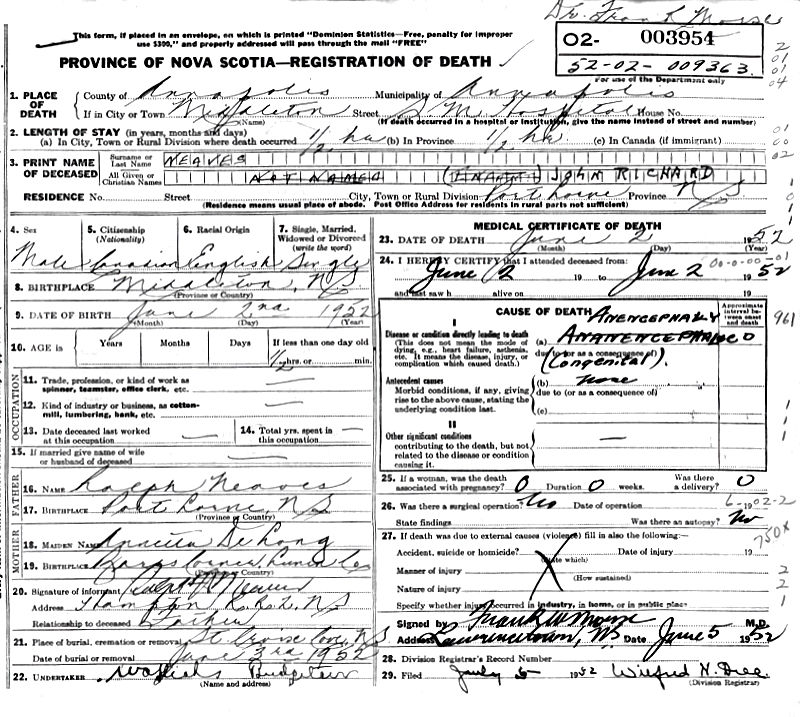 Dr. Frank Morse
This form, if placed in an envelope, on which is printed "Dominion Statistics—Free, penalty for improper
use $300," and properly addressed will pass through the mail "FREE"
O2- 003954
52-02-009363.
For use of the Department only
PROVINCE OF NOVA SCOTIA—REGISTRATION OF DEATH
1. PLACE OF DEATH County of Annapolis Municipality of Annapolis
If in City or Town Middleton Street S M Hospital House No.
(Name) (If death occurred in a hospital or institution, give the name instead of street and number)
2. LENGTH OF STAY (in years, months and days)
(a) In City, Town or Rural Division where death occurred 1/2 hr (b) In Province 1/2 hr (c) In Canada (if immigrant)
3. PRINT NAME OF DECEASED Surname or Last Name NEAVES
All Given or Christian Names NOT NAMED (INFANT) JOHN RICHARD
RESIDENCE No. Street City, Town or Rural Division Port Lorne Province N S
(Residence means usual place of abode. Post Office Address for residents in rural parts not sufficient)
4. Sex 5. Citizenship (Nationality) 6. Racial Origin 7. Single, Married, Widowed or Divorced (write the word)
Male Canadian English Single
8. BIRTHPLACE Middleton, N.S
(Province or Country)
9. DATE OF BIRTH June 2nd 1952
(Month) (Day) (Year)
10. AGE is Years Months Days If less than one day old
1/2 hrs. or min.
OCCUPATION
11. Trade, profession, or kind of work as spinner, teamster, office clerk, etc. —
12. Kind of industry or business, as cotton-mill, lumbering, bank, etc. —
13. Date deceased last worked at this occupation — 14. Total yrs. spent in this occupation —
15. If married give name of wife or husband of deceased —
FATHER
16. NAME Ralph Neaves
17. BIRTHPLACE Port Lorne, N.S
(Province or Country)
MOTHER
18. MAIDEN NAME DeLong
19. BIRTHPLACE
(Province or Country)
20. Signature of informant Ralph Neaves
Address Hampton R.R.2, N S
Relationship to deceased Father
21. Place of burial, cremation or removal St. Croix Cove, NS
Date of burial or removal June 3rd 1952
22. UNDERTAKER Bridgetown
(Name and address)
MEDICAL CERTIFICATE OF DEATH
23. DATE OF DEATH June 2 1952
(Month) (Day) (Year)
24. I HEREBY CERTIFY that I attended deceased from:
June 2 19 to June 2 1952
and last saw h alive on 19
CAUSE OF DEATH Approximate interval between onset and death
I
Disease or condition directly leading to death
(This does not mean the mode of dying, e.g., heart failure, asthenia, etc. It means the disease, injury, or complication which caused death.)
ANENCEPHALY
(a)
due to (or as a consequence of)
(Congenital).
Antecedent causes
Morbid conditions, if any, giving rise to the above cause, stating the underlying condition last.
(b) None
due to (or as a consequence of)
(c)
II
Other significant conditions
contributing to the death, but not related to the disease or condition causing it.
—
961
25. If a woman, was the death associated with pregnancy? 0 Duration 0 weeks. Was there a delivery? 0
26. Was there a surgical operation? No Date of operation
State findings Was there an autopsy? No
27. If death was due to external causes (violence) fill in also the following:—
Accident, suicide or homicide? Date of injury 19
(State which)
Manner of injury
(How sustained)
Nature of injury
Specify whether injury occurred in industry, in home, or in public place
Signed by Frank W Morse M.D.
Address Lawrencetown, NS Date June 5 1952
28. Division Registrar's Record Number
29. Filed July 5 1952 Wilfred H. Dill
(Division Registrar)